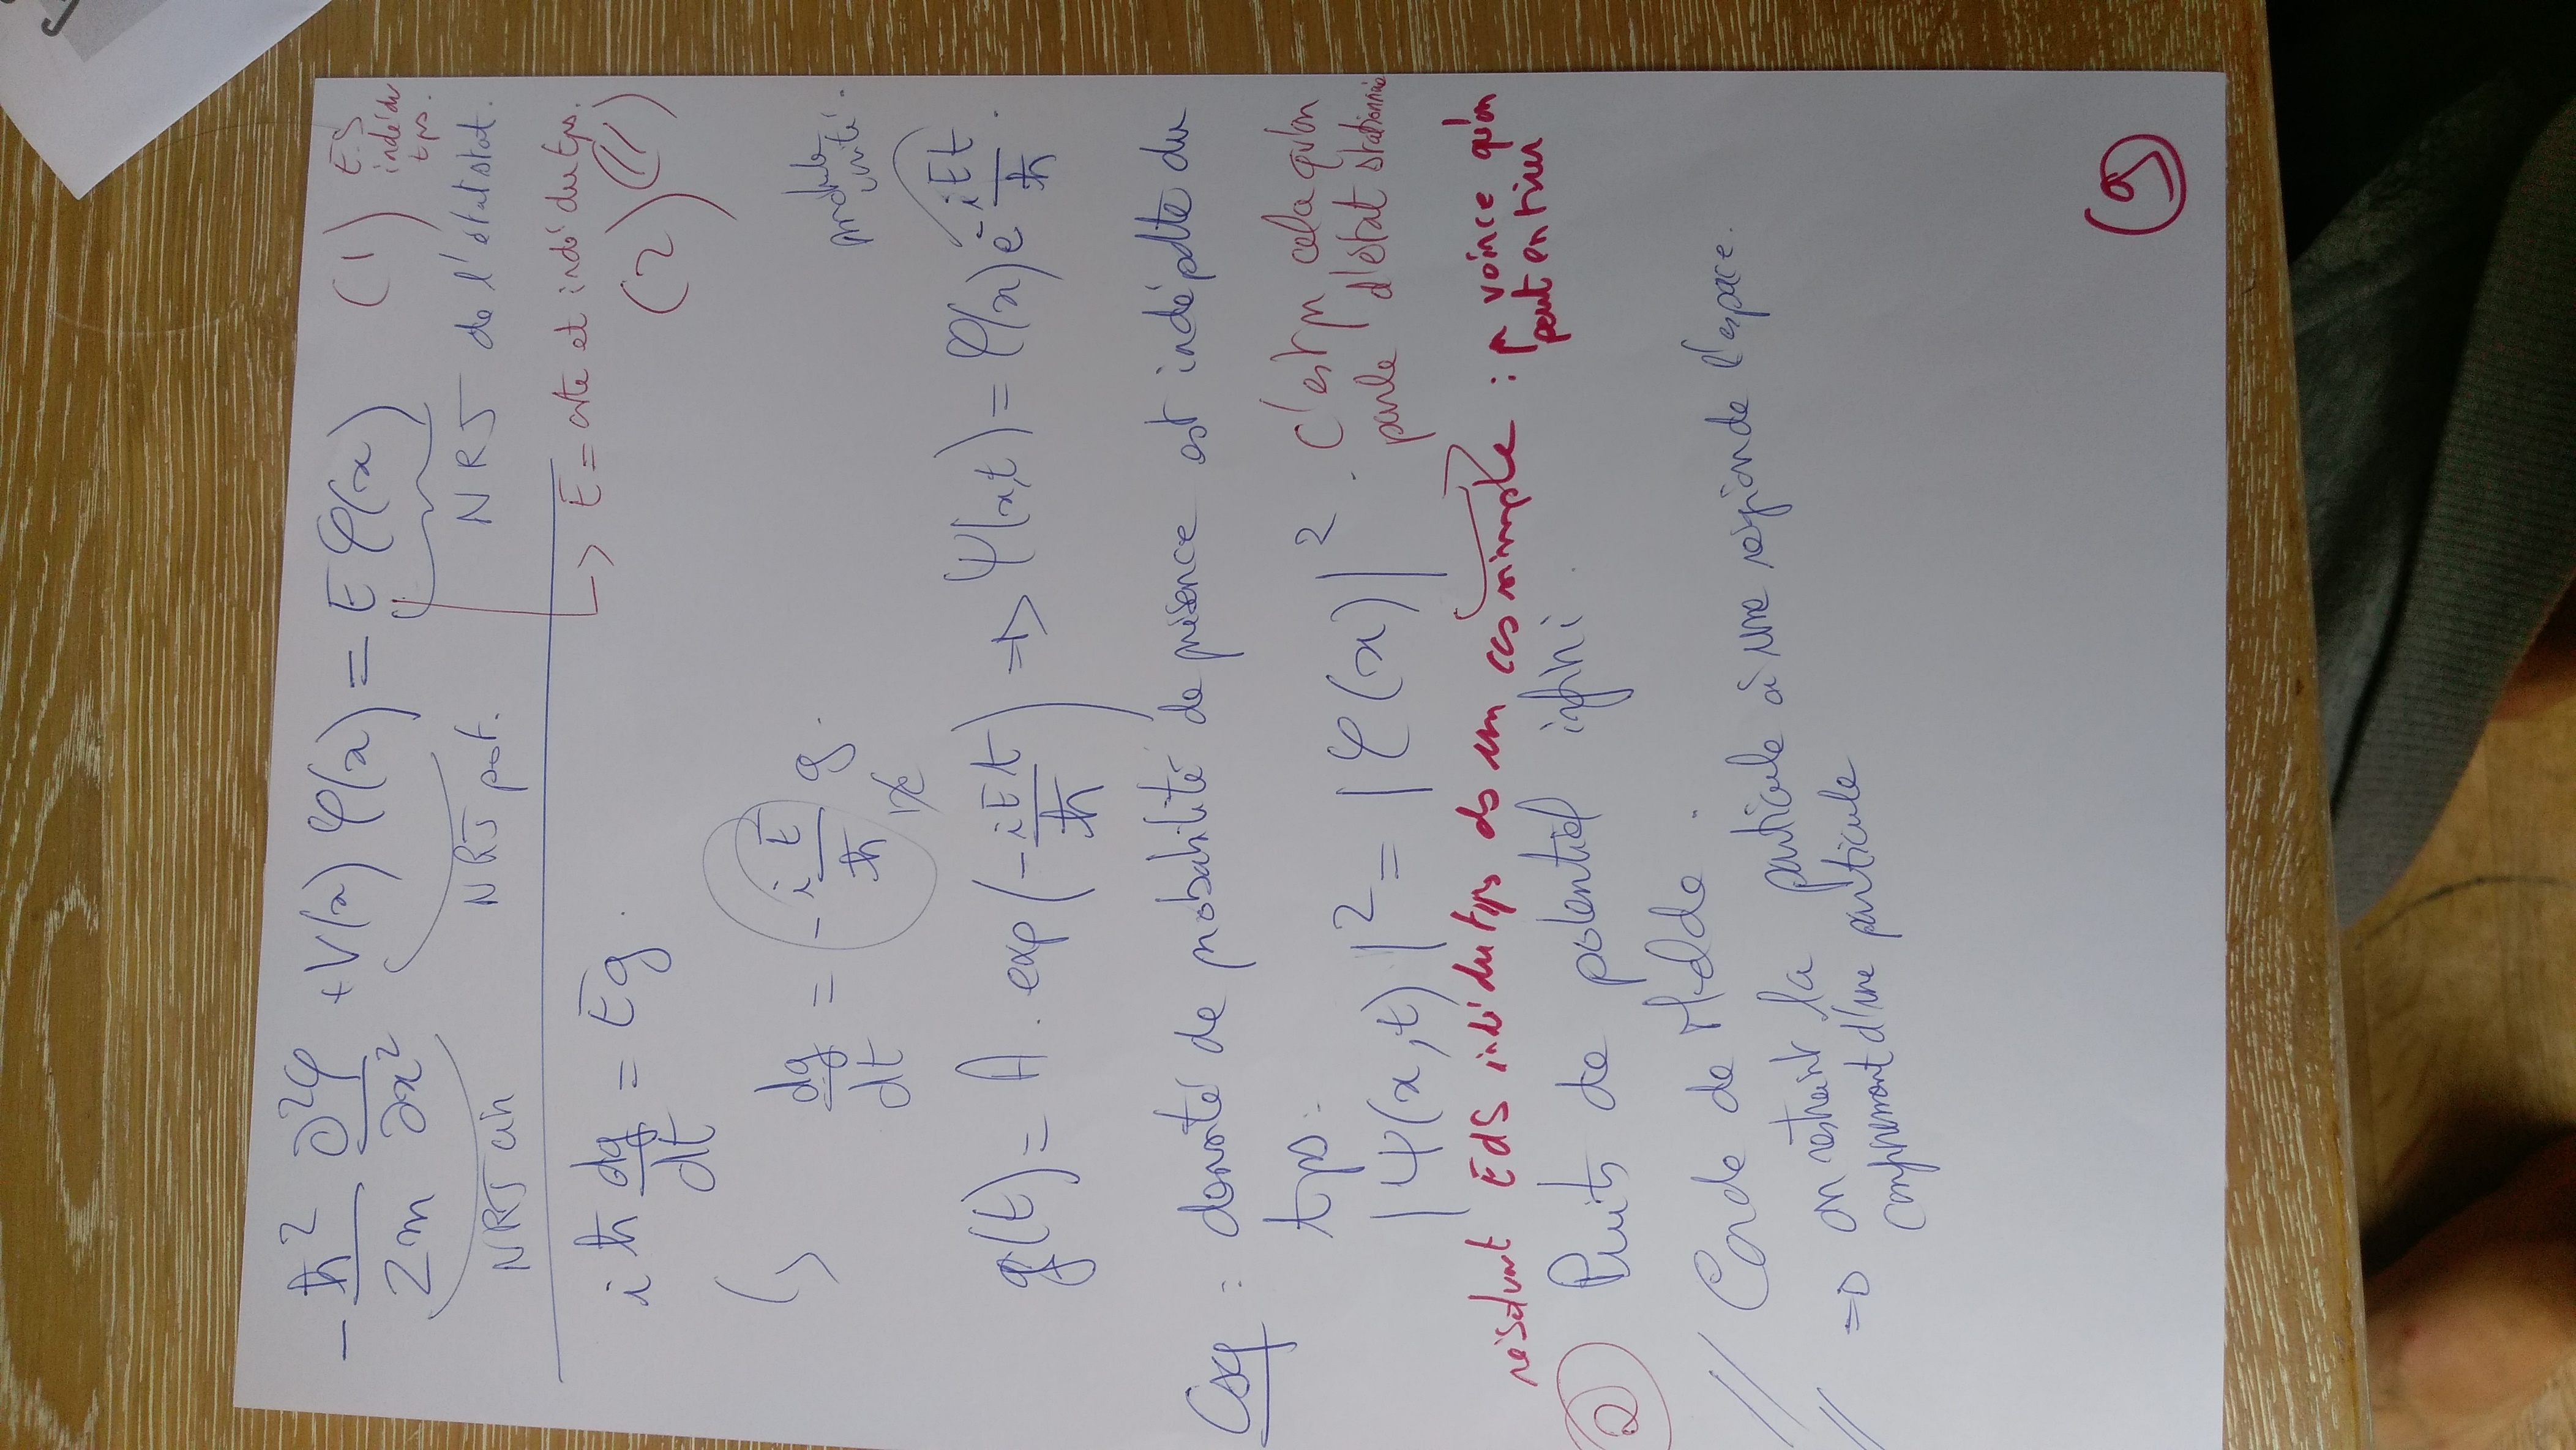 -ħ²/2m ∂²φ/∂x² + V(x) φ(x) = E φ(x) (1) E.S indé du tps.
NRJ cin NRJ pot. NRJ de l'état stat.
↳ E = cte et indé du tps.
iħ dg/dt = Eg. (2)
↳ dg/dt = -iE/ħ g. module unité.
g(t) = A. exp(-iEt/ħ) => ψ(x,t) = φ(x) e^-iEt/ħ.
Csq : densité de probabilité de présence est indépdte du
tps.
|ψ(x,t)|² = |φ(x)|². C'est pr cela qu'on
parle d'état stationnaire
résolvant EdS indé du tps ds un cas simple : pr voir ce qu'on
peut en tirer
② Puits de potentiel infini.
// Corde de Melde.
// => on restreint la particule à une région de l'espace.
comprennent d'une particule
9